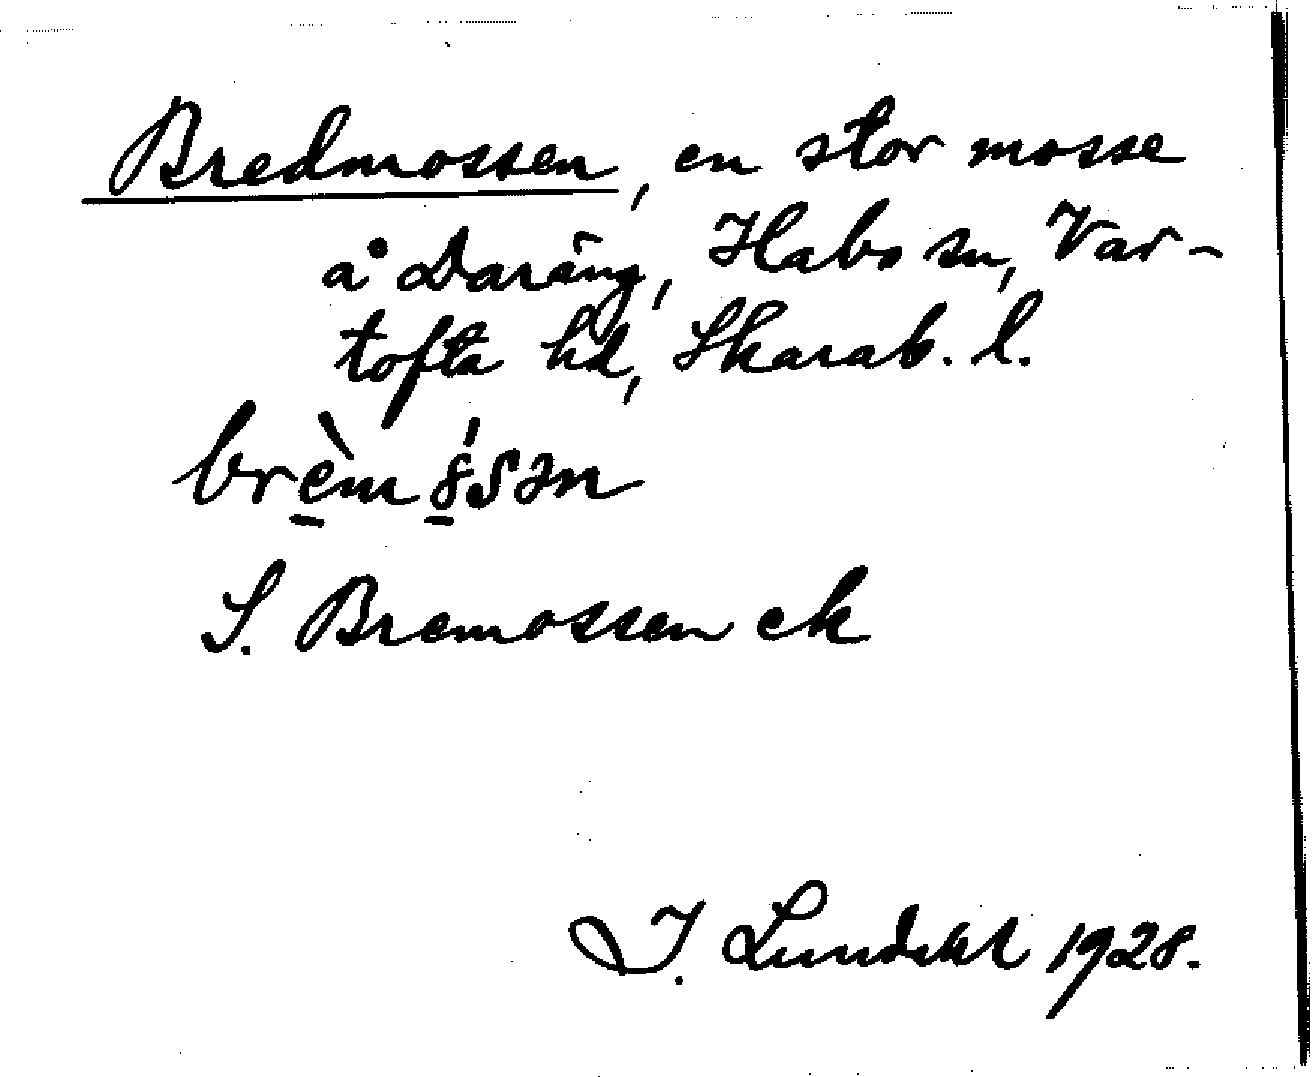 Bredmossen, en stor mosse
å Daräng, Habo sn, Var-
tofta hd, Skarab. l.
brèmósən
S. Bremossen ek
I. Lundahl 1928.